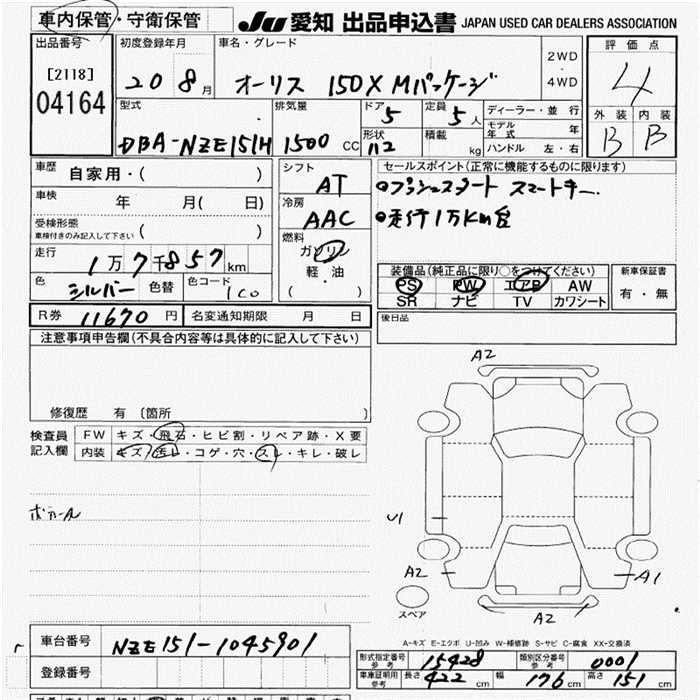 車内保管・守衛保管 JU 愛知 出品申込書 JAPAN USED CAR DEALERS ASSOCIATION
出品番号 初度登録年月 車名・グレード 2WD・4WD 評価点
[2118] 20 8月 オーリス 150X Mパッケージ 4
04164
型式 排気量 ドア 5 定員 5人 ディーラー・並行 外装 内装
モデル年式 年
DBA-NZE151H 1500 CC 形状 積載 kg ハンドル 左・右 B B
車歴 自家用・( ) シフト AT セールスポイント(正常に機能するものに限ります)
車検 年 月( 日) 冷房 AAC ●プッシュスタート スマートキー
受検形態 ( ) ●走行1万Km台
車検付きのみ記入して下さい
走行 1万7千857km 燃料 ガソリン 軽油 ( ・ )
装備品(純正品に限り○をつけてください) 新車保証書
PS PW エアB AW 有・無
SR ナビ TV カワシート
色 シルバー 色替 色コード 1C0
R券 11670円 名変通知期限 月 日 後日品
注意事項申告欄(不具合内容等は具体的に記入して下さい)
修復歴 有〔箇所 〕
検査員記入欄 FW キズ・飛石・ヒビ割・リペア跡・X要
内装 キズ・汚レ・コゲ・穴・スレ・キレ・破レ
A2
U1
A2
A1
A2
スペア
A-キズ E-エクボ U-凹み W-補修跡 S-サビ C-腐食 XX-交換済
車台番号 NZE151-1045901
登録番号
形式指定番号 参考 15428 類別区分番号 参考 0001
車庫証明用 参考 長さ 422cm 幅 176cm 高さ 151cm